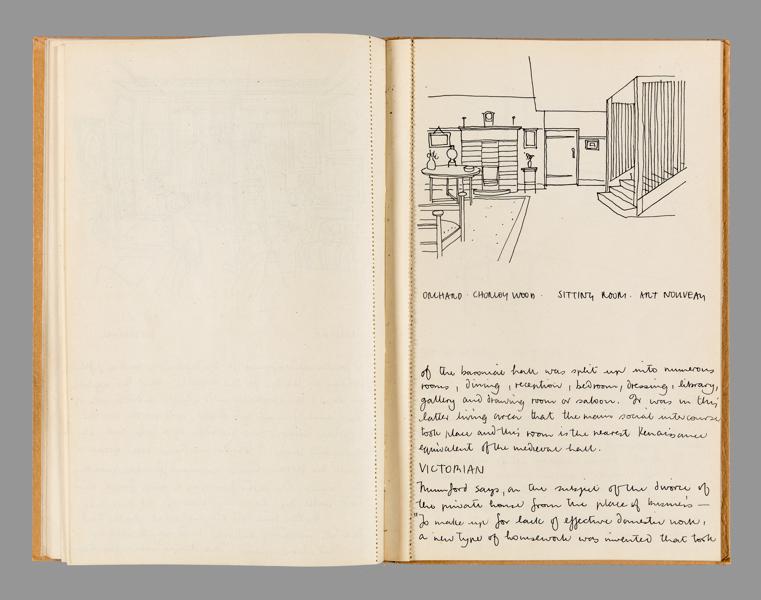 ORCHARD · CHORLEY WOOD · SITTING ROOM · ART NOUVEAU
of the baronial hall was split up into numerous
rooms, dining, reception, bedroom, dressing, library,
gallery and drawing room or saloon. It was in this
latter living area that the main social intercourse
took place and this room is the nearest Renaisance
equivalent of the medieval hall.
VICTORIAN
Mumford says, on the subject of the divorce of
the private house from the place of business —
"To make up for lack of effective domestic work,
a new type of housework was invented that took